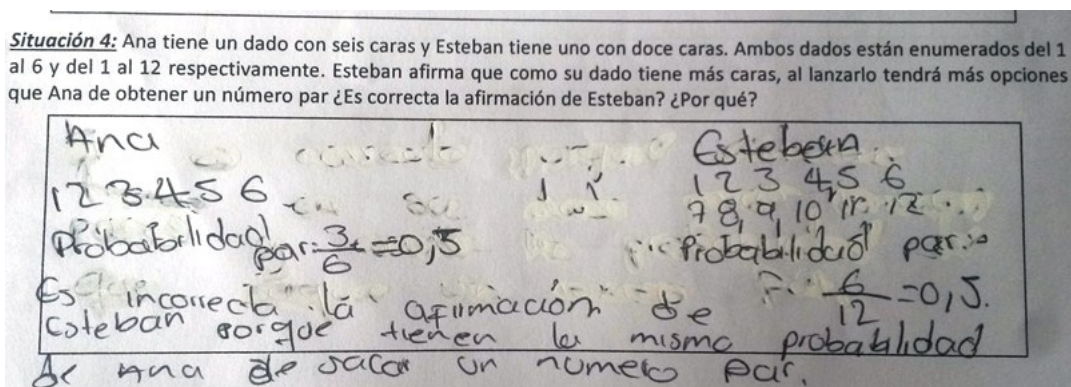 Situación 4: Ana tiene un dado con seis caras y Esteban tiene uno con doce caras. Ambos dados están enumerados del 1
al 6 y del 1 al 12 respectivamente. Esteban afirma que como su dado tiene más caras, al lanzarlo tendrá más opciones
que Ana de obtener un número par ¿Es correcta la afirmación de Esteban? ¿Por qué?
Ana
1 2 3 4 5 6
Probabilidad par: 3/6 = 0,5
Esteban
1 2 3 4, 5 6
7 8, 9, 10, 11, 12
Probabilidad par:
6/12 = 0,5.
Es incorrecta la afirmación de
Esteban porque tienen la misma probabilidad
de Ana de sacar un numero par.